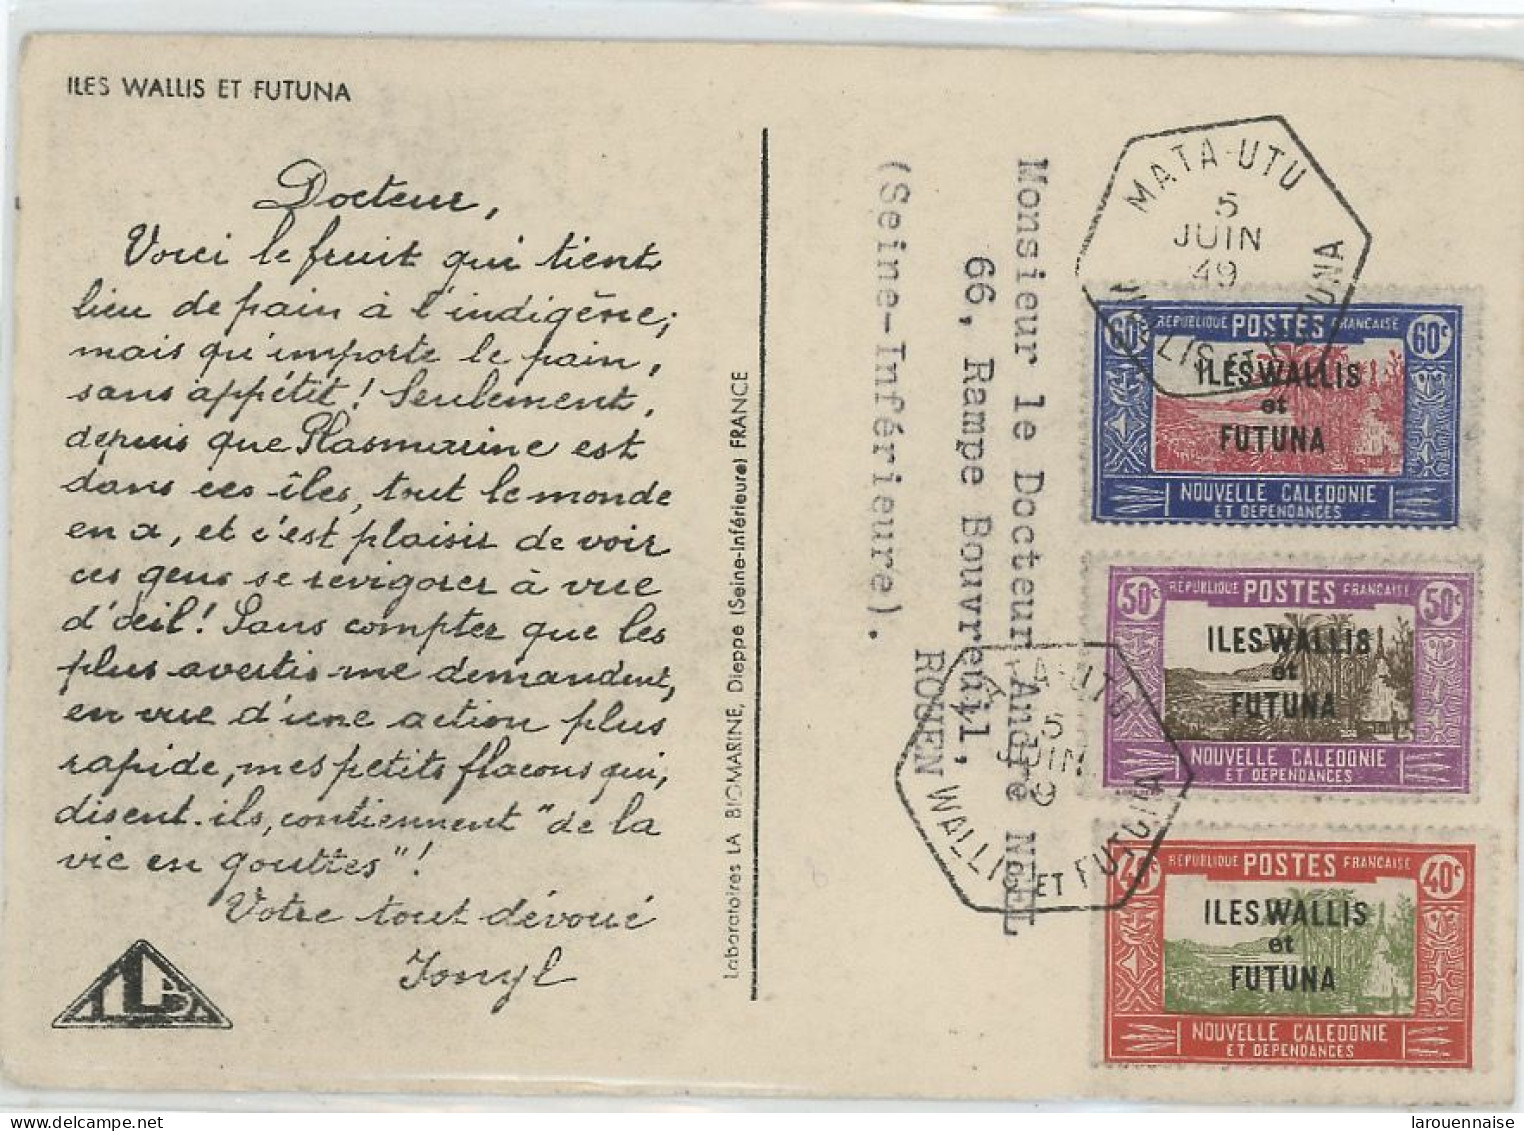 ILES WALLIS ET FUTUNA
Docteur,
Voici le fruit qui tient
lieu de pain à l'indigène;
mais qu'importe le pain,
sans appétit! Seulement,
depuis que Plasmarine est
dans ces îles, tout le monde
en a, et c'est plaisir de voir
ces gens se revigorer à vue
d'œil! Sans compter que les
plus avertis me demandent,
en vue d'une action plus
rapide, mes petits flacons qui,
disent-ils, contiennent "de la
vie en gouttes"!
Votre tout dévoué
Ionyl
Laboratoires LA BIOMARINE, Dieppe (Seine-Inférieure) FRANCE
Monsieur le Docteur André NOEL
66, Rampe Bouvreuil,
ROUEN
(Seine-Inférieure).
MATA-UTU
5
JUIN
49
WALLIS ET FUTUNA
60c RÉPUBLIQUE POSTES FRANÇAISE 60c
ILES WALLIS
et
FUTUNA
NOUVELLE CALEDONIE
ET DEPENDANCES
MATA-UTU
5
JUIN
49
WALLIS ET FUTUNA
50c RÉPUBLIQUE POSTES FRANÇAISE 50c
ILES WALLIS
et
FUTUNA
NOUVELLE CALEDONIE
ET DEPENDANCES
40c RÉPUBLIQUE POSTES FRANÇAISE 40c
ILES WALLIS
et
FUTUNA
NOUVELLE CALEDONIE
ET DEPENDANCES
larouennaise